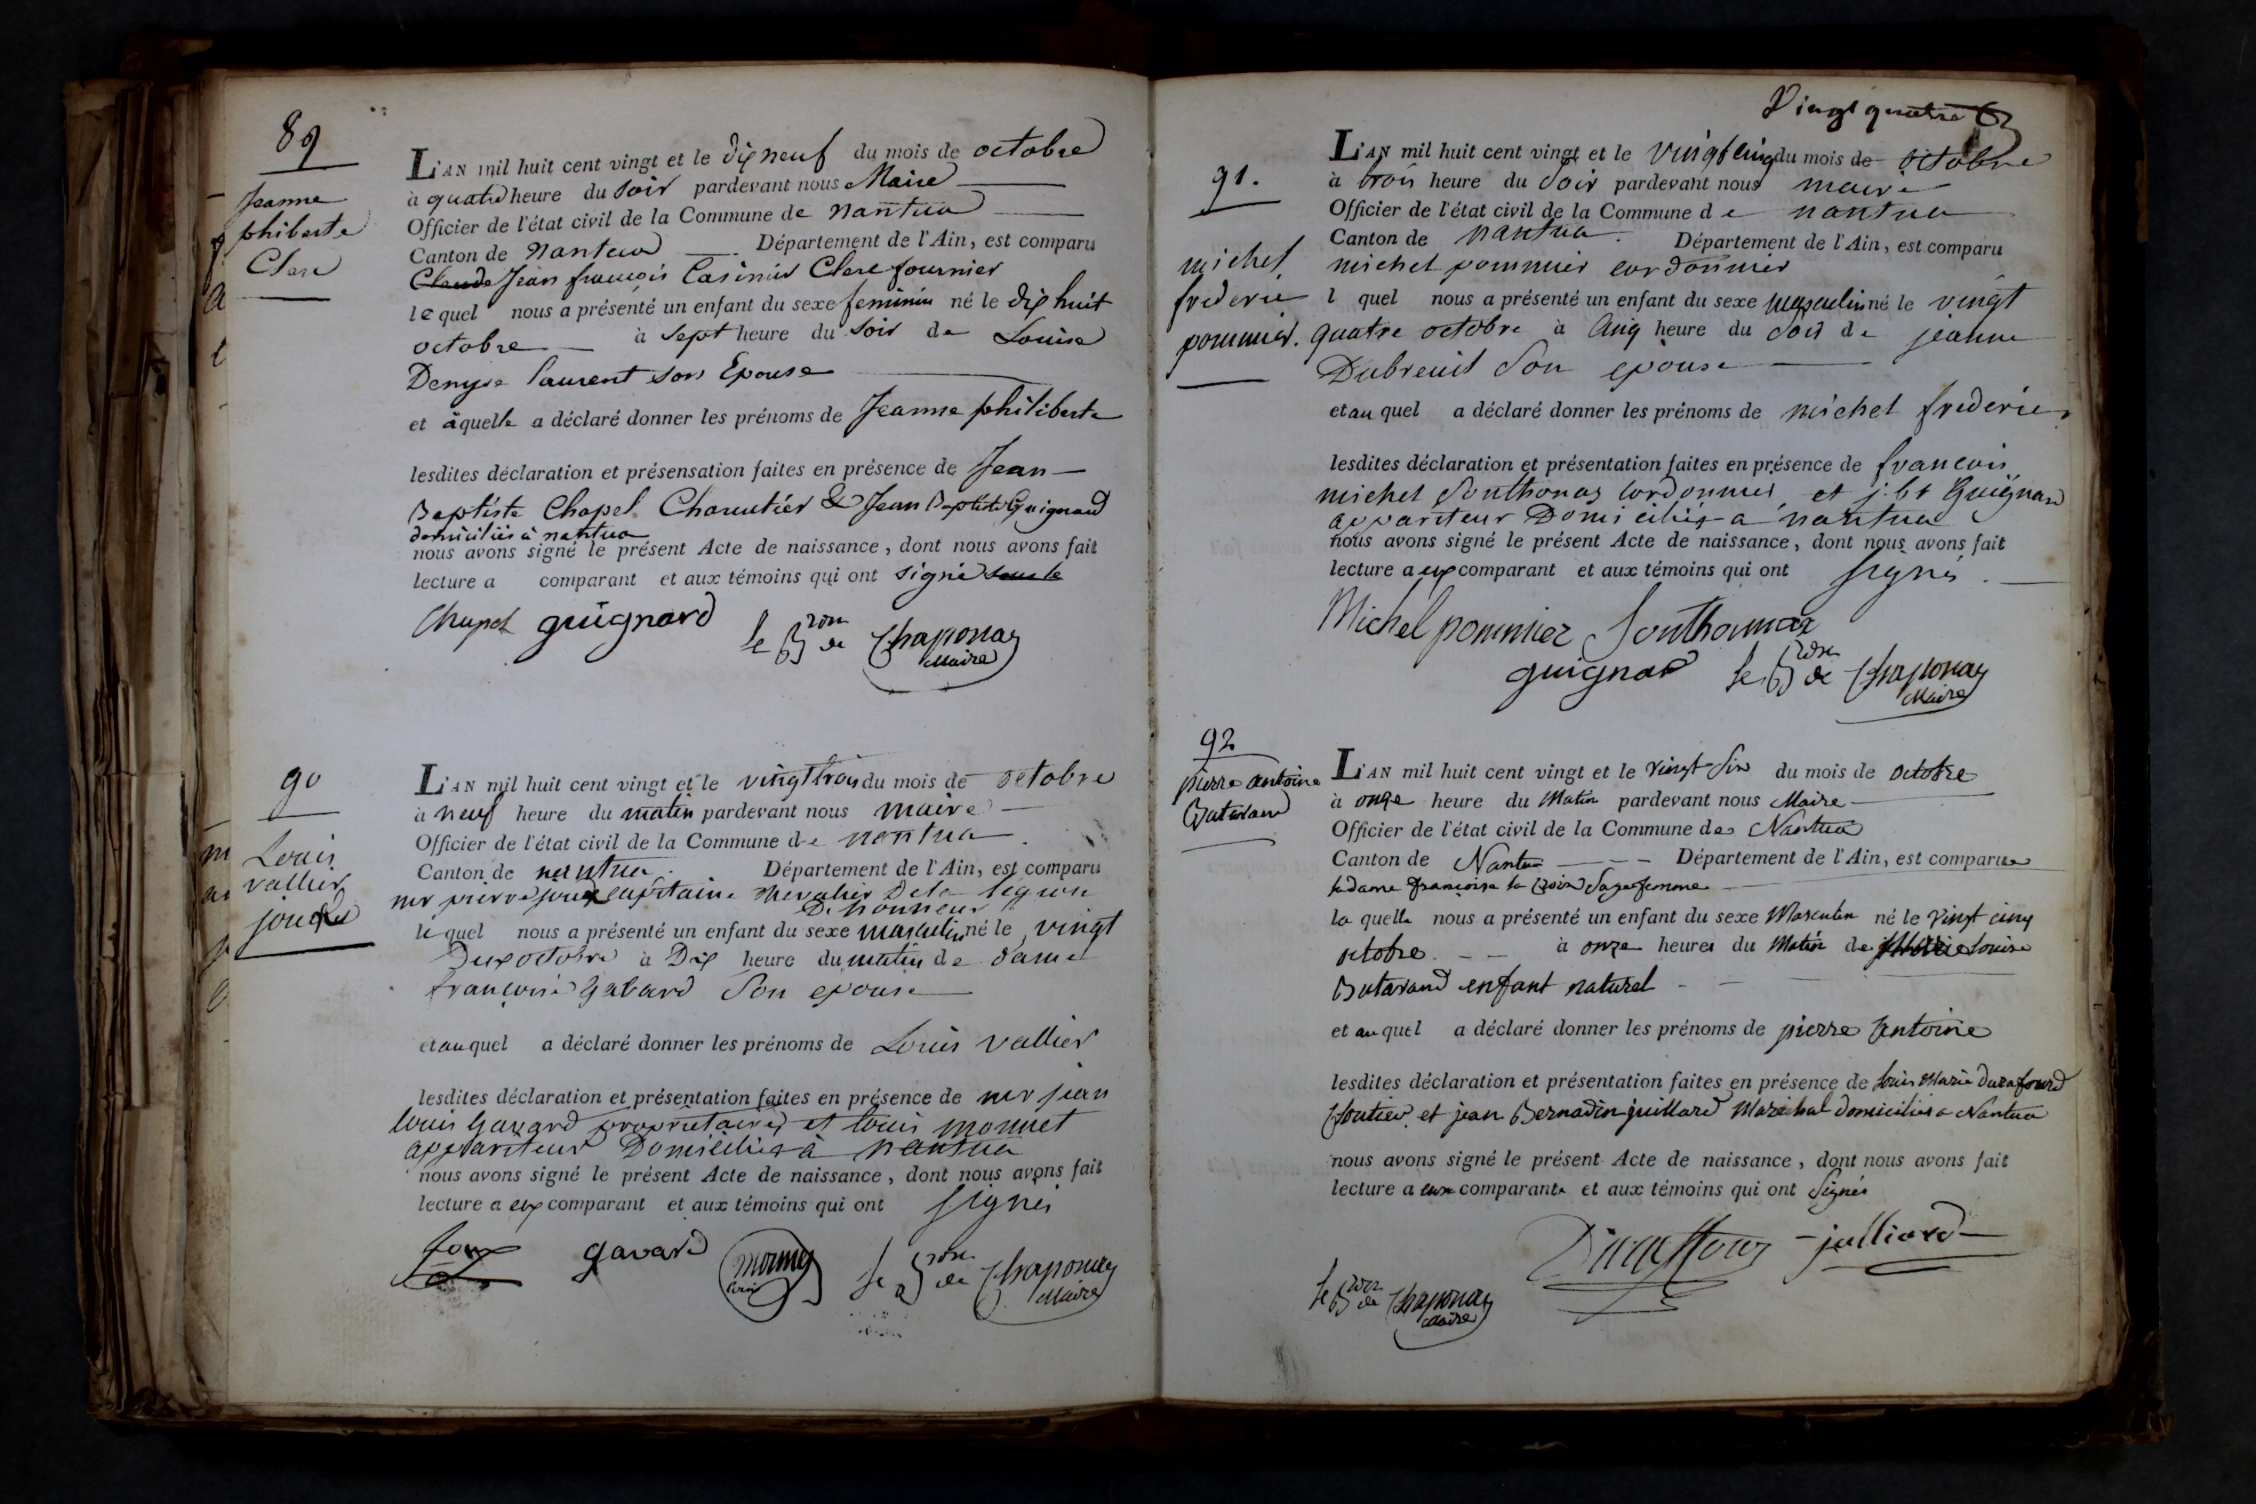 89
Jeanne
phiberte
Clerc
L'AN mil huit cent vingt et le dix neuf du mois de octobre
à quatre heure du soir pardevant nous Maire
Officier de l'état civil de la Commune de nantua
Canton de Nantua Département de l'Ain, est comparu
Claude Jean françois Casimir Clerc fournier
lequel nous a présenté un enfant du sexe feminin né le dix huit
octobre à sept heure du soir de Louise
Denyse laurent son Epouse
et à quelle a déclaré donner les prénoms de Jeanne philiberte
lesdites déclaration et présensation faites en présence de Jean
Baptiste Chapel Charcutier & Jean Baptiste Guignard
domiciliés à nantua
nous avons signé le présent Acte de naissance, dont nous avons fait
lecture a comparant et aux témoins qui ont signé
Chapel guignard le Bron de Chaponay
Maire
90
Louis
vallier
L'AN mil huit cent vingt et le vingt trois du mois de octobre
à neuf heure du matin pardevant nous maire
Officier de l'état civil de la Commune de nantua
Canton de nantua Département de l'Ain, est comparu
mr pierre capitaine chevalier De la legion
D'honneur
lequel nous a présenté un enfant du sexe masculin né le vingt
Deux octobre à Dix heure du matin de dame
françoise gavard Son epouse
et au quel a déclaré donner les prénoms de Louis vallier
lesdites déclaration et présentation faites en présence de mr jean
louis gavard propriétaire et louis monnet
appariteur Domiciliés à nantua
nous avons signé le présent Acte de naissance, dont nous avons fait
lecture a eux comparant et aux témoins qui ont signés
gavard le Bron de Chaponay
Maire
Vingt quatre
91.
michel
frederic
pommier.
L'AN mil huit cent vingt et le vingt cinq du mois de octobre
à trois heure du Soir pardevant nous maire
Officier de l'état civil de la Commune de nantua
Canton de nantua. Département de l'Ain, est comparu
michel pommier cordonnier
l quel nous a présenté un enfant du sexe masculin né le vingt
quatre octobre à Cinq heure du Soir de jeanne
Dubreuil Son epouse
et au quel a déclaré donner les prénoms de michel frederic
lesdites déclaration et présentation faites en présence de francois
michel Sonthonas cordonnier et j. bt Guignard
appariteur Domiciliés a nantua
nous avons signé le présent Acte de naissance, dont nous avons fait
lecture a eux comparant et aux témoins qui ont signés.
Michel pommier Sonthonnax
guignard le Bron de Chaponay
Maire
92
pierre antoine
Butavand
L'AN mil huit cent vingt et le vingt-Six du mois de octobre
à onze heure du Matin pardevant nous Maire
Officier de l'état civil de la Commune de Nantua
Canton de Nantua Département de l'Ain, est comparue
la dame françoise la Croix Sage femme
la quelle nous a présenté un enfant du sexe Masculin né le vingt cinq
octobre à onze heures du Matin de Louise
Butavand enfant naturel
et au quel a déclaré donner les prénoms de pierre Antoine
lesdites déclaration et présentation faites en présence de Louis Marie Durafourd
Cloutier et jean Bernadin juillard Maréchal domiciliés a Nantua
nous avons signé le présent Acte de naissance, dont nous avons fait
lecture a eux comparante et aux témoins qui ont Signés
julliard
le Bron de Chaponay
Maire